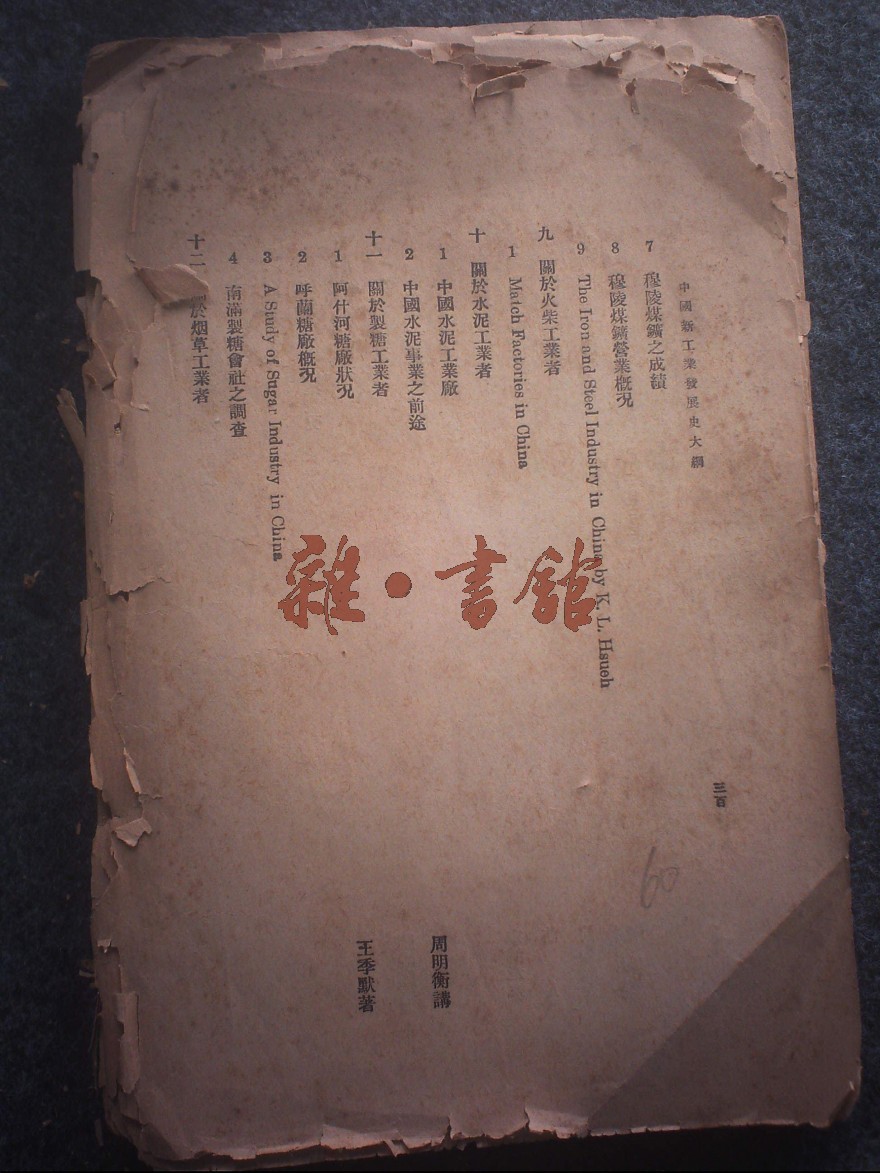 中國新工業發展史大綱 三百
7 穆陵煤鑛之成績
8 穆陵煤鑛營業概况
9 The Iron and Steel Industry in China by K. L. Hsueh
九 關於火柴工業者
1 Match Factories in China
十 關於水泥工業者
1 中國水泥工業廠
2 中國水泥事業之前途 周明衡講
十一 關於製糖工業者
1 阿什河糖廠狀况 王季默著
2 呼蘭糖廠概况
3 A Study of Sugar Industry in China
4 南滿製糖會社之調查
十二 於烟草工業者
60
雜·書館